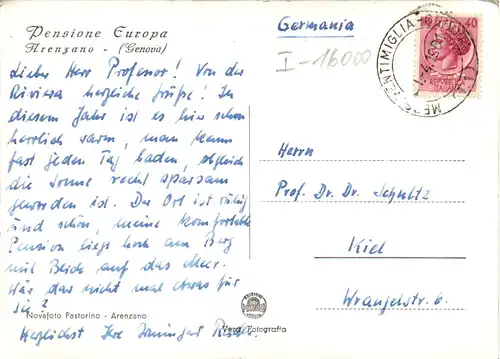 Pensione Europa
Arenzano - (Genova)
Lieber Herr Professor! Von der
Riviera herzliche Grüße! In
diesem Jahr ist es hier schon
herrlich warm, man kann
fast jeden Tag baden, obgleich
die Sonne recht sparsam
geworden ist. Der Ort ist ruhig
und schön, meine komfortable
Pension liegt hoch am Berg
mit Blick auf das Meer.
Wär das nicht mal etwas für
Sie?
Herzlichst Ihre
Novafoto Pastorino - Arenzano
Vera Fotografia
Germania
I-16000
40
VENTIMIGLIA
ITALIANE
Herrn
Prof. Dr. Dr. Schultz
Kiel
Wrangelstr. 6.